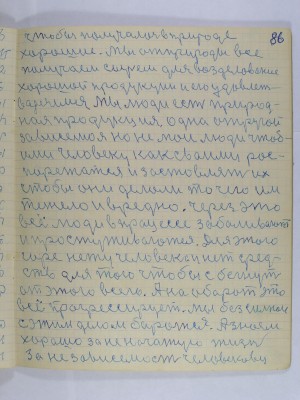 86
чтобы получалось в природе
хорошие. Мы от природы все
получаем сырьем для возделование
хорошой продукции и его удовлет
варяемся. Мы люди ест природ-
ная продукция, одна от другой
зависимося но не мои люди чтоб-
ими человеку как своими рос-
поретатся и заставлят их
чтобы они делали то чего им
тяжело и вредно. через это
всё люди в процессе заболивают
и простуживаются. Для этого
горе нету человеком нет сред-
ств для того чтобы с бегнут
от этого всего. А на оборот это
всё прогрессирует. мы без сильны
с этим делом боротся. А знаем
хорошо за не начатую жизн
за не зависемост человекову